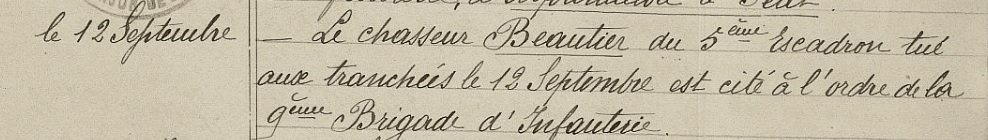 le 12 Septembre
— Le chasseur Beautier du 5ème Escadron tué
aux tranchées le 12 Septembre est cité à l'ordre de la
9ème Brigade d'Infanterie.